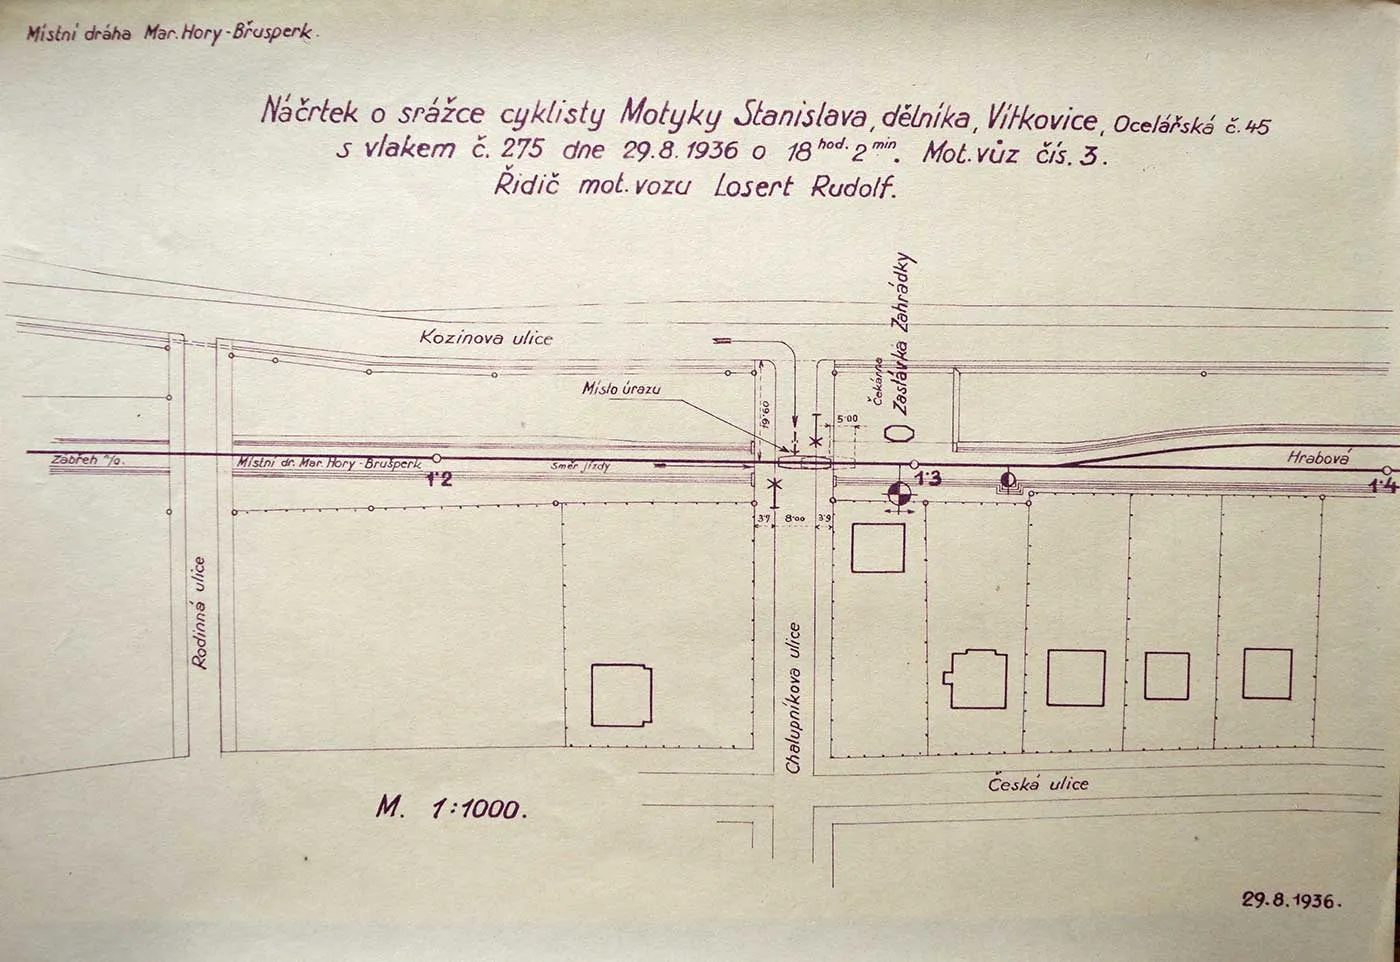 Místní dráha Mar. Hory-Břusperk.
Náčrtek o srážce cyklisty Motyky Stanislava, dělníka, Vítkovice, Ocelářská č. 45
s vlakem č. 275 dne 29.8.1936 o 18 hod. 2 min. Mot. vůz čís. 3.
Řidič mot. vozu Losert Rudolf.
Zastávka Zahrádky
Čekárna
Kozinova ulice
Místo úrazu
19·60
5·00
Zábřeh n/O.
Místní dr. Mar. Hory-Brušperk
Směr jízdy
Hrabová
1·2
1·3
1·4
3·9
8·00
3·9
Rodinná ulice
Chalupníkova ulice
Česká ulice
M. 1:1000.
29.8.1936.